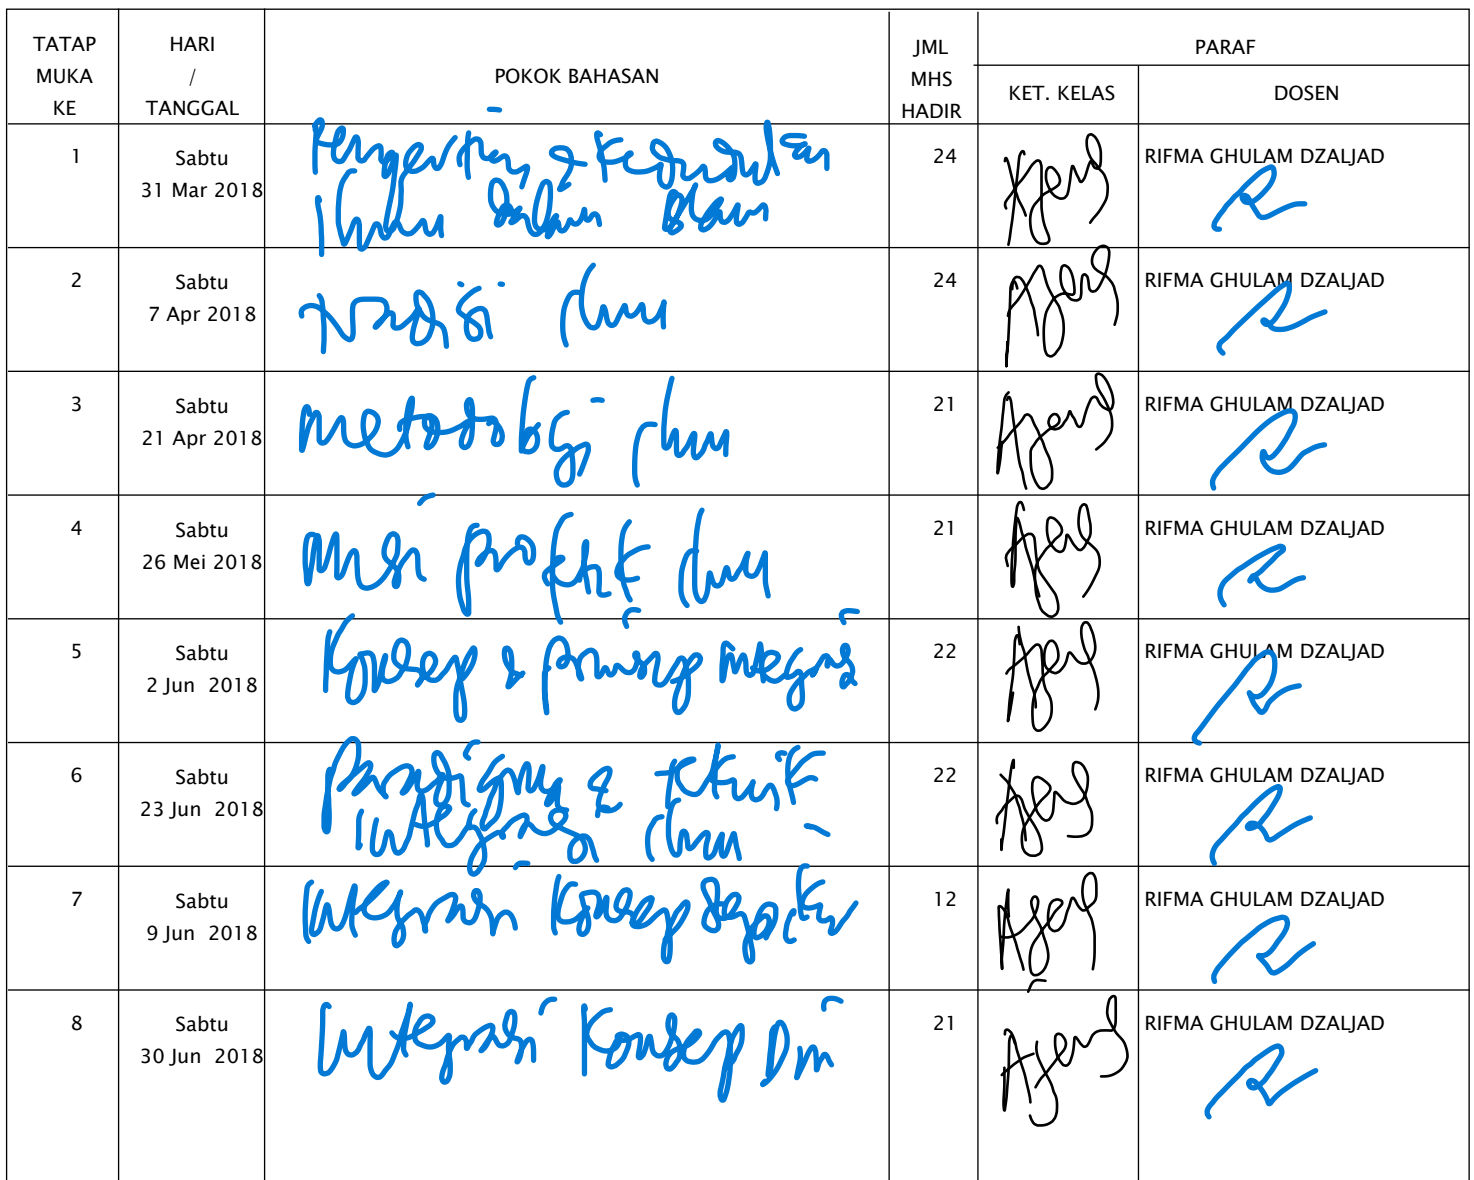 TATAP MUKA KE HARI / TANGGAL POKOK BAHASAN JML MHS HADIR PARAF
KET. KELAS DOSEN
1 Sabtu 31 Mar 2018 Pengertian & Kedudukan 24 RIFMA GHULAM DZALJAD
Ilmu dalam Islam
2 Sabtu 7 Apr 2018 Tradisi Ilmu 24 RIFMA GHULAM DZALJAD
3 Sabtu 21 Apr 2018 Metodologi Ilmu 21 RIFMA GHULAM DZALJAD
4 Sabtu 26 Mei 2018 Misi profetik Ilmu 21 RIFMA GHULAM DZALJAD
5 Sabtu 2 Jun 2018 Konsep & prinsip integrasi 22 RIFMA GHULAM DZALJAD
6 Sabtu 23 Jun 2018 Paradigma & teknik 22 RIFMA GHULAM DZALJAD
Integrasi Ilmu
7 Sabtu 9 Jun 2018 Integrasi Konsep 12 RIFMA GHULAM DZALJAD
8 Sabtu 30 Jun 2018 Integrasi Konsep Diri 21 RIFMA GHULAM DZALJAD